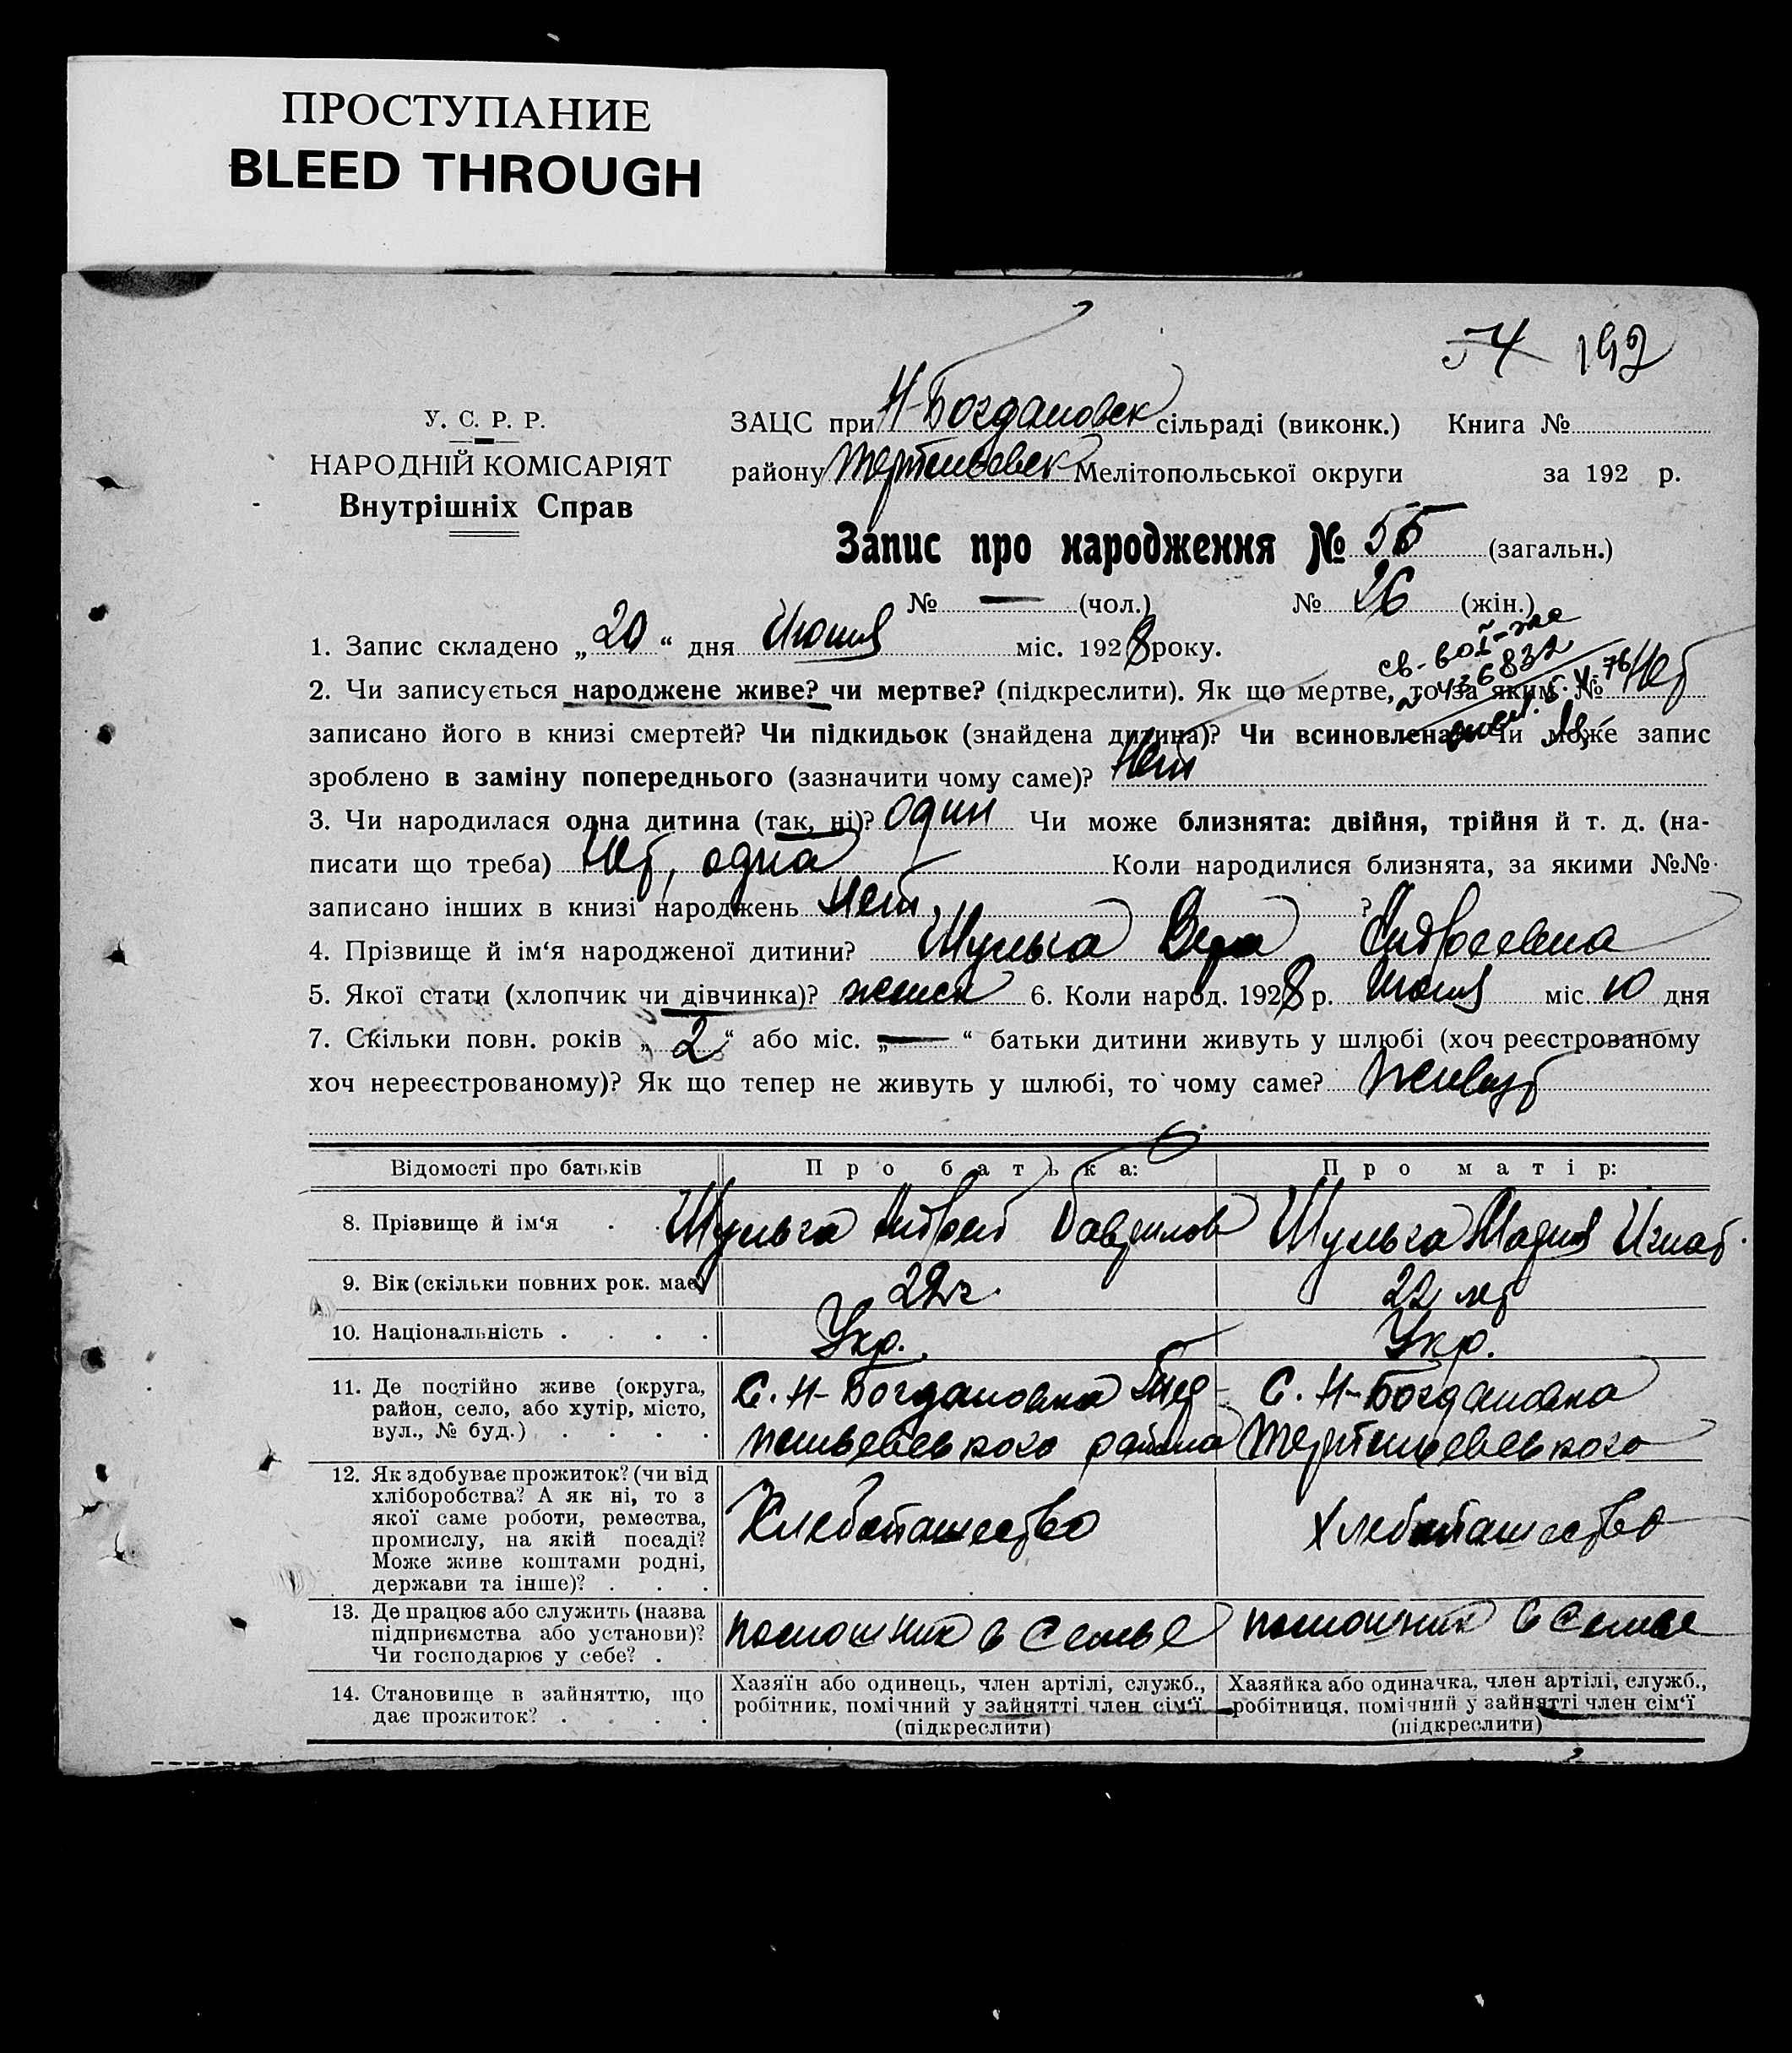 ПРОСТУПАНИЕ
BLEED THROUGH
54 192
У. С. Р. Р.
НАРОДНІЙ КОМІСАРІЯТ
Внутрішніх Справ
ЗАЦС при Н-Богдановск сільраді (виконк.) Книга №
району Терпеньевск Мелітопольської округи за 192 р.
Запис про народження № 55 (загальн.)
№ — (чол.) № 26 (жін.)
1. Запис складено „20“ дня Июня міс. 1928 року.
св-во I-
436832
2. Чи записується народжене живе? чи мертве? (підкреслити). Як що мертве, то за яким № Нет
записано його в книзі смертей? Чи підкидьок (знайдена дитина)? Чи всиновлена? Чи може запис
зроблено в заміну попереднього (зазначити чому саме)? Нет
3. Чи народилася одна дитина (так, ні)? один Чи може близнята: двійня, трійня й т. д. (на-
писати що треба) Нет, одна Коли народилися близнята, за якими №№
записано інших в книзі народжень Нет ?
4. Прізвище й ім‘я народженої дитини? Шульга Вера Андреевна
5. Якої стати (хлопчик чи дівчинка)? женск 6. Коли народ. 1928 р. Июня міс. 10 дня
7. Скільки повн. років „2“ або міс. „—“ батьки дитини живуть у шлюбі (хоч реєстрованому
хоч нереєстрованому)? Як що тепер не живуть у шлюбі, то чому саме? Живут
Відомості про батьків Про батька: Про матір:
8. Прізвище й ім‘я . . Шульга Андрей Гаврилов Шульга Мария Игнат.
9. Вік (скільки повних рок. має) 22 г. 22 лет
10. Національність . . . . Укр. Укр.
11. Де постійно живе (округа, район, село, або хутір, місто, вул., № буд.) . . . .
С. Н-Богдановка Тер-
пеньевевского района
С. Н-Богдановка
Терпеньевевского
12. Як здобуває прожиток? (чи від
хліборобства? А як ні, то з
якої саме роботи, ремества,
промислу, на якій посаді?
Може живе коштами родні,
держави та інше)? . . .
Хлебопашество Хлебопашество
13. Де працює або служить (назва
підприємства або установи)?
Чи господарює у себе? .
помошник в семье помошник в семье
14. Становище в зайняттю, що
дає прожиток? . . . .
Хазяїн або одинець, член артілі, служб.,
робітник, помічний у зайнятті член сім‘ї
(підкреслити)
Хазяйка або одиначка, член артілі, служб.,
робітниця, помічний у зайнятті член сім‘ї
(підкреслити)